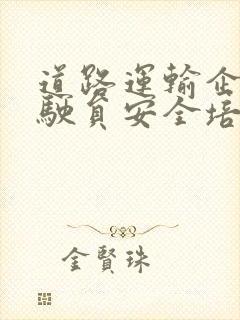 道路運輸企
駛員安全培
金賢珠